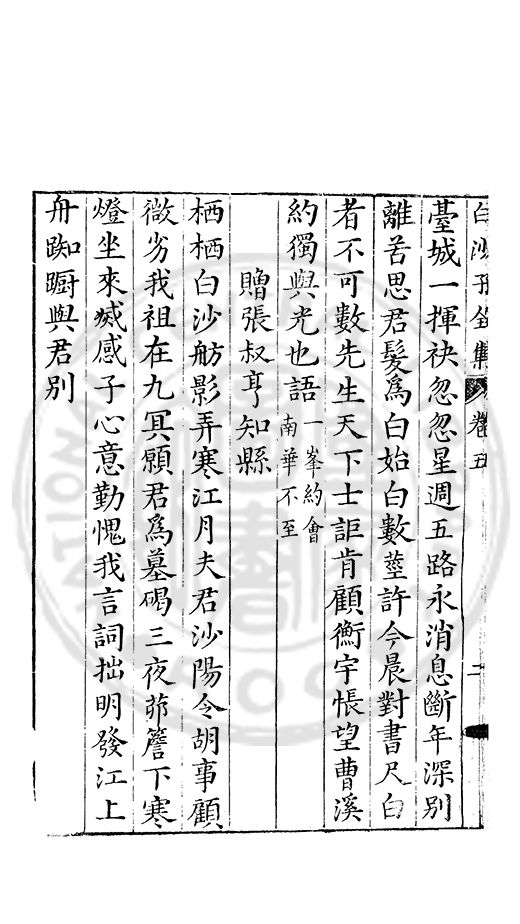 白沙子全集 卷五 二
臺城一揮袂忽忽星週五路永消息斷年深別
離苦思君髮爲白始白數莖許今晨對書尺白
者不可數先生天下士詎肯顧衡宇悵望曹溪
約獨與光也語一峯約會南華不至
贈張叔亨知縣
栖栖白沙舫影弄寒江月夫君沙陽令胡事顧
微劣我祖在九冥願君爲墓碣三夜茆簷下寒
燈坐來滅感子心意勤愧我言詞拙明發江上
舟踟躕與君別